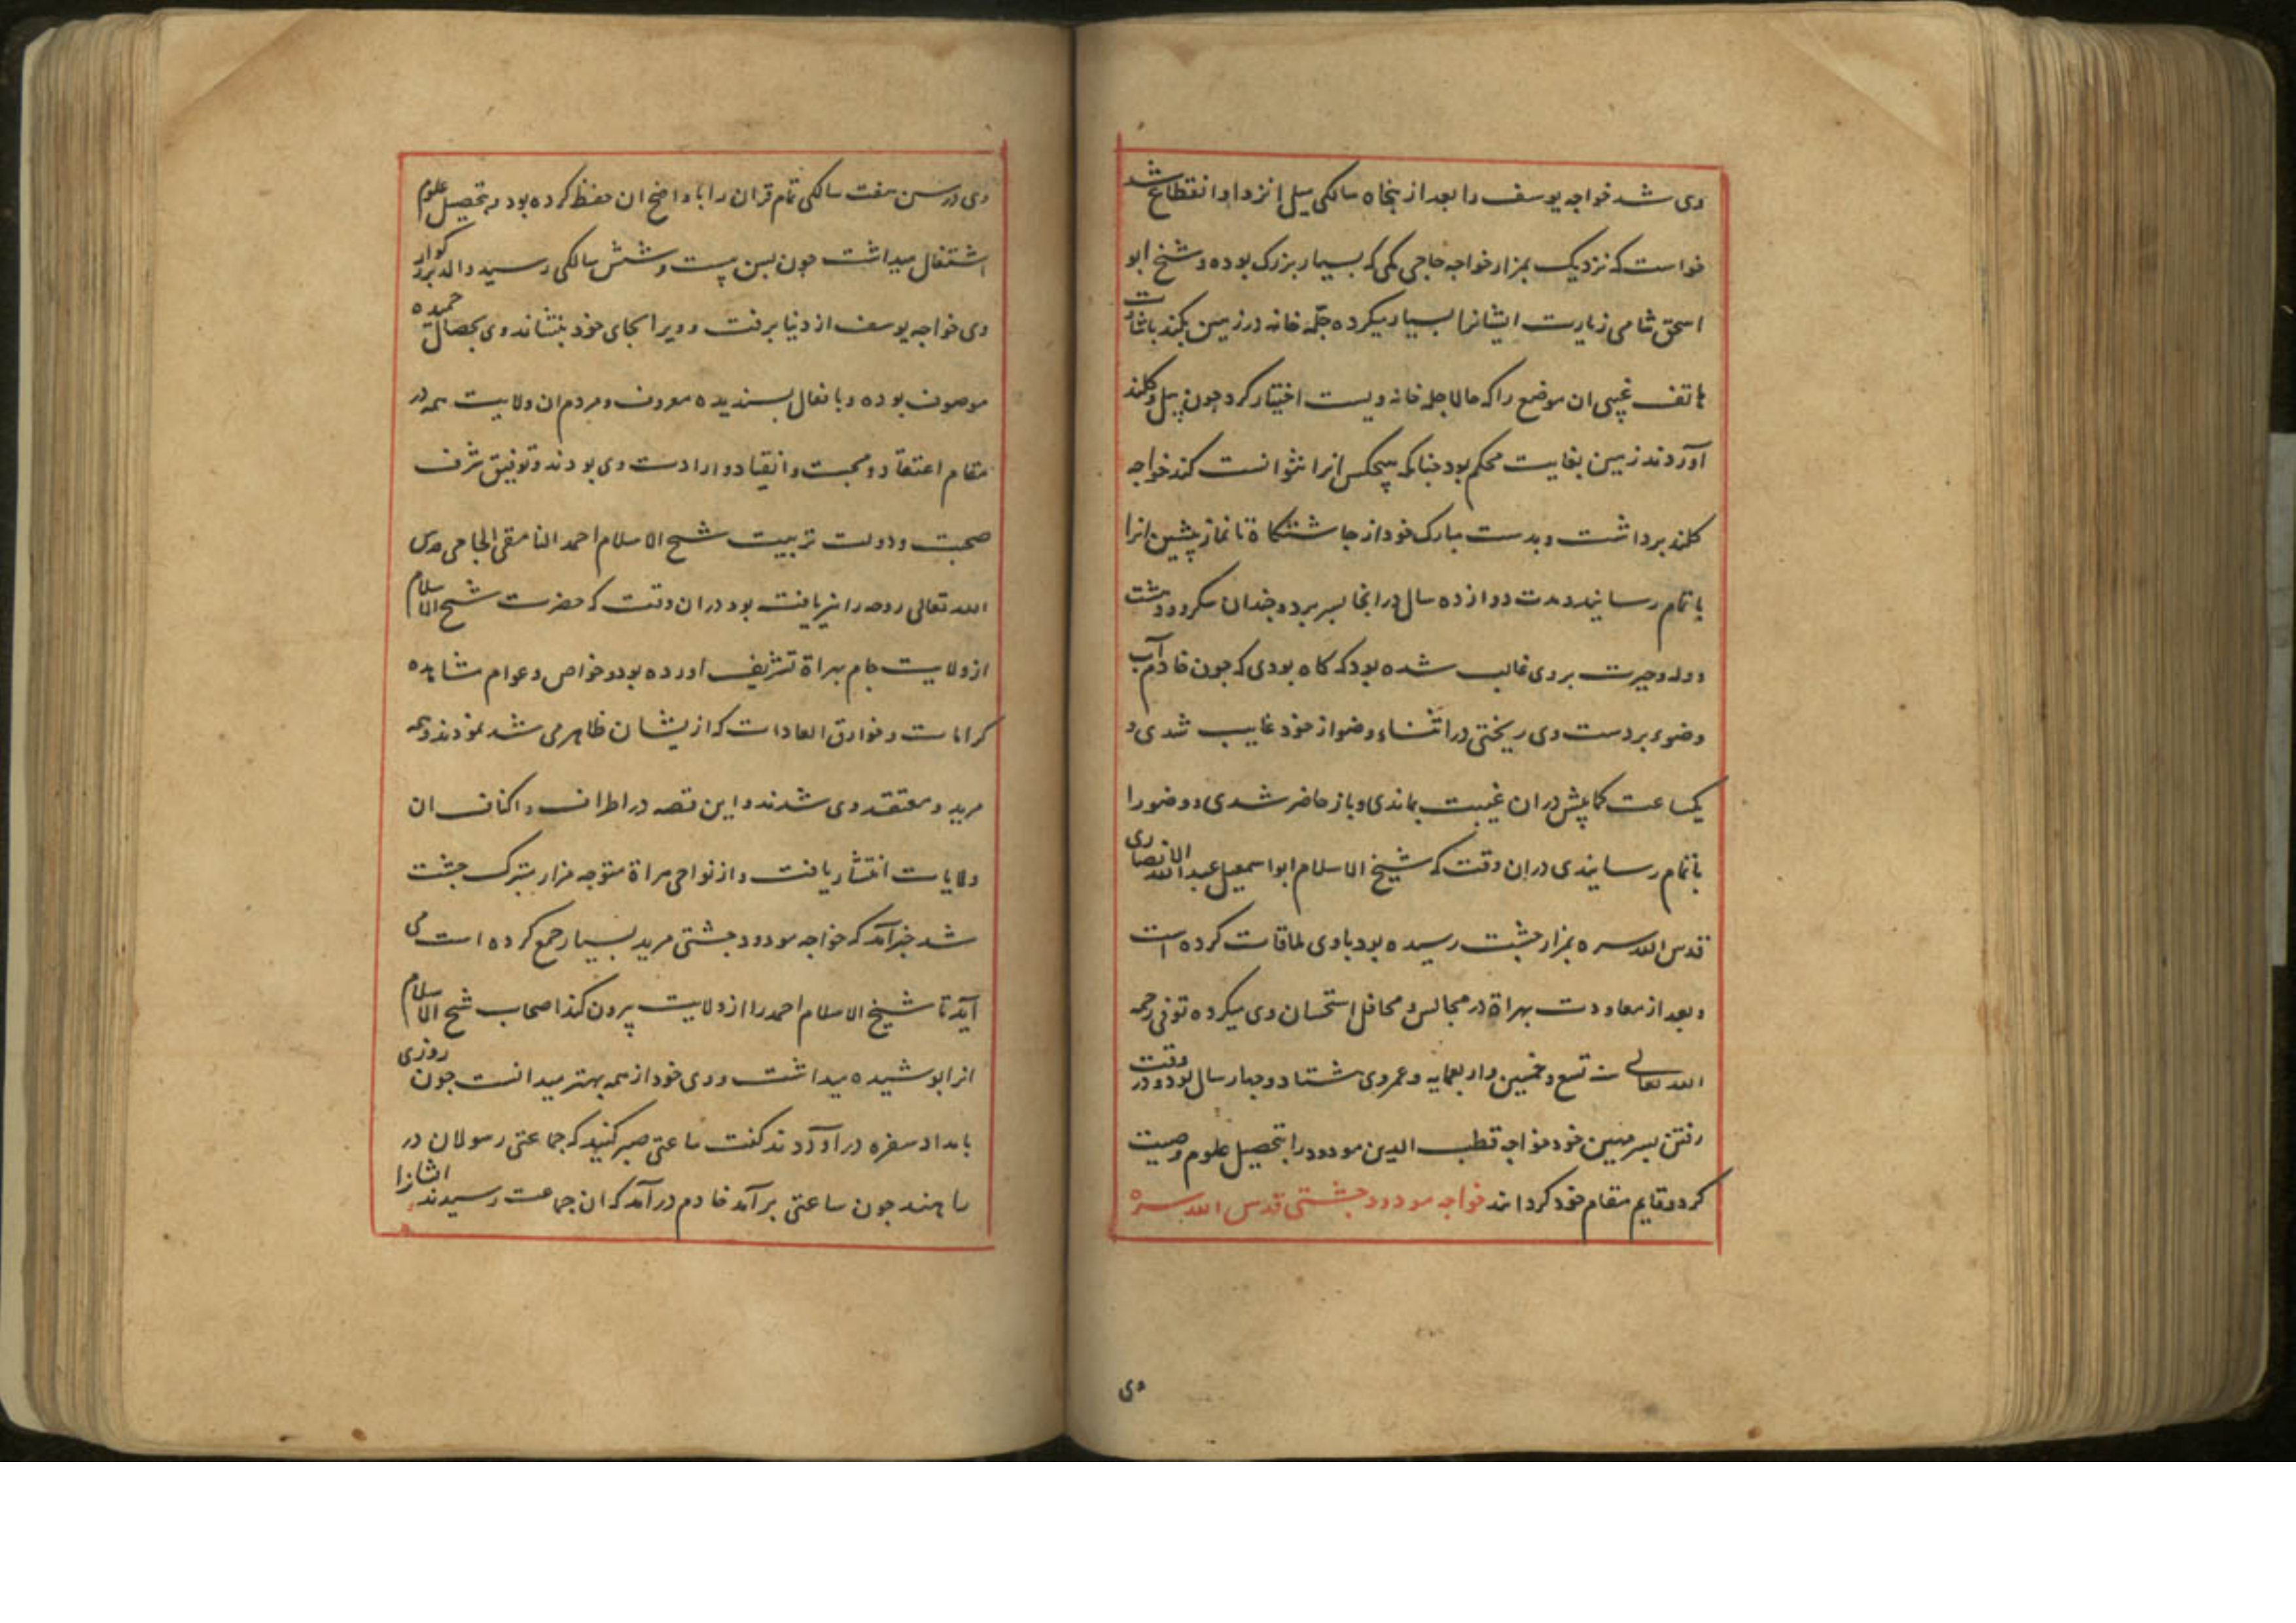 وی شد خواجه یوسف را بعد از پنجاه سالکی میل انزوا و انقطاع شد
خواست که نزدیک بمزار خواجه حاجی مکی که بسیار بزرک بوده و شیخ ابو
اسحق شامی زیارت ایشانرا بسیار میکرده چله خانه در زمین بکند باشارت
هاتف غیبی ان موضع را که حالا چله خانه ویست اختیار کرد چون بیل و کلند
آوردند زمین بغایت محکم بود چنانکه هیچکس انرا نتوانست کند خواجه
کلند برداشت و بدست مبارک خود از چاشتکاه تا نماز پیشین انرا
باتمام رسانید و مدت دوازده سال در انجا بسر برد و چندان سکر و دهشت
و وله و حیرت بروی غالب شده بود که کاه بودی که چون خادم آب
وضوء بر دست وی ریختی در اثناء وضو از خود غایب شدی و
یکساعت کمابیش در ان غیبت بماندی و باز حاضر شدی و وضو را
باتمام رسانیدی در ان وقت که شیخ الاسلام ابو اسمعیل عبد الله الانصاری
قدس الله سره بمزار چشت رسیده بود با وی ملاقات کرده است
و بعد از معاودت بهراة در مجالس و محافل استحسان وی میکرده توفی رحمه
الله تعالی سنه تسع و خمسین و اربعمایه و عمر وی هشتاد و چهار سال بود و در وقت
رفتن پسر مهین خود خواجه قطب الدین مودود را بتحصیل علوم وصیت
کرد و قایم مقام خود کردانید خواجه مودود چشتی قدس الله سره
وی
وی در سن هفت سالکی تمام قران را با واضح ان حفظ کرده بود و بتحصیل علوم
اشتغال میداشت چون بسن بیست و شش سالکی رسید والد بزرکوار
وی خواجه یوسف از دنیا برفت و ویرا بجای خود بنشاند وی بخصال حمیده
موصوف بوده و بافعال پسندیده معروف و مردم ان ولایت همه در
مقام اعتقاد و محبت و انقیاد و ارادت وی بودند و توفیق شرف
صحبت و دولت تربیت شیخ الاسلام احمد النامقی الجامی قدس
الله تعالی روحه را نیز یافت بود در ان وقت که حضرت شیخ الاسلام
از ولایت جام بهراة تشریف آورده بود و خواص و عوام مشاهده
کرامات و خوارق العادات که از یشان ظاهر می شد نمودند و همه
مرید و معتقد وی شدند و این قصه در اطراف و اکناف ان
ولایات انتشار یافت و از نواحی هراة متوجه مزار متبرک چشت
شد خبر آمد که خواجه مودود چشتی مرید بسیار جمع کرده است می
آید تا شیخ الاسلام احمد را از ولایت بیرون کند اصحاب شیخ الاسلام
انرا پوشیده میداشت و وی خود از همه بهتر میدانست چون روزی
بامداد سفره در آوردند کفت ساعتی صبر کنید که جماعتی رسولان در
راهند چون ساعتی برآمد خادم درآمد که ان جماعت رسیدند ایشانرا